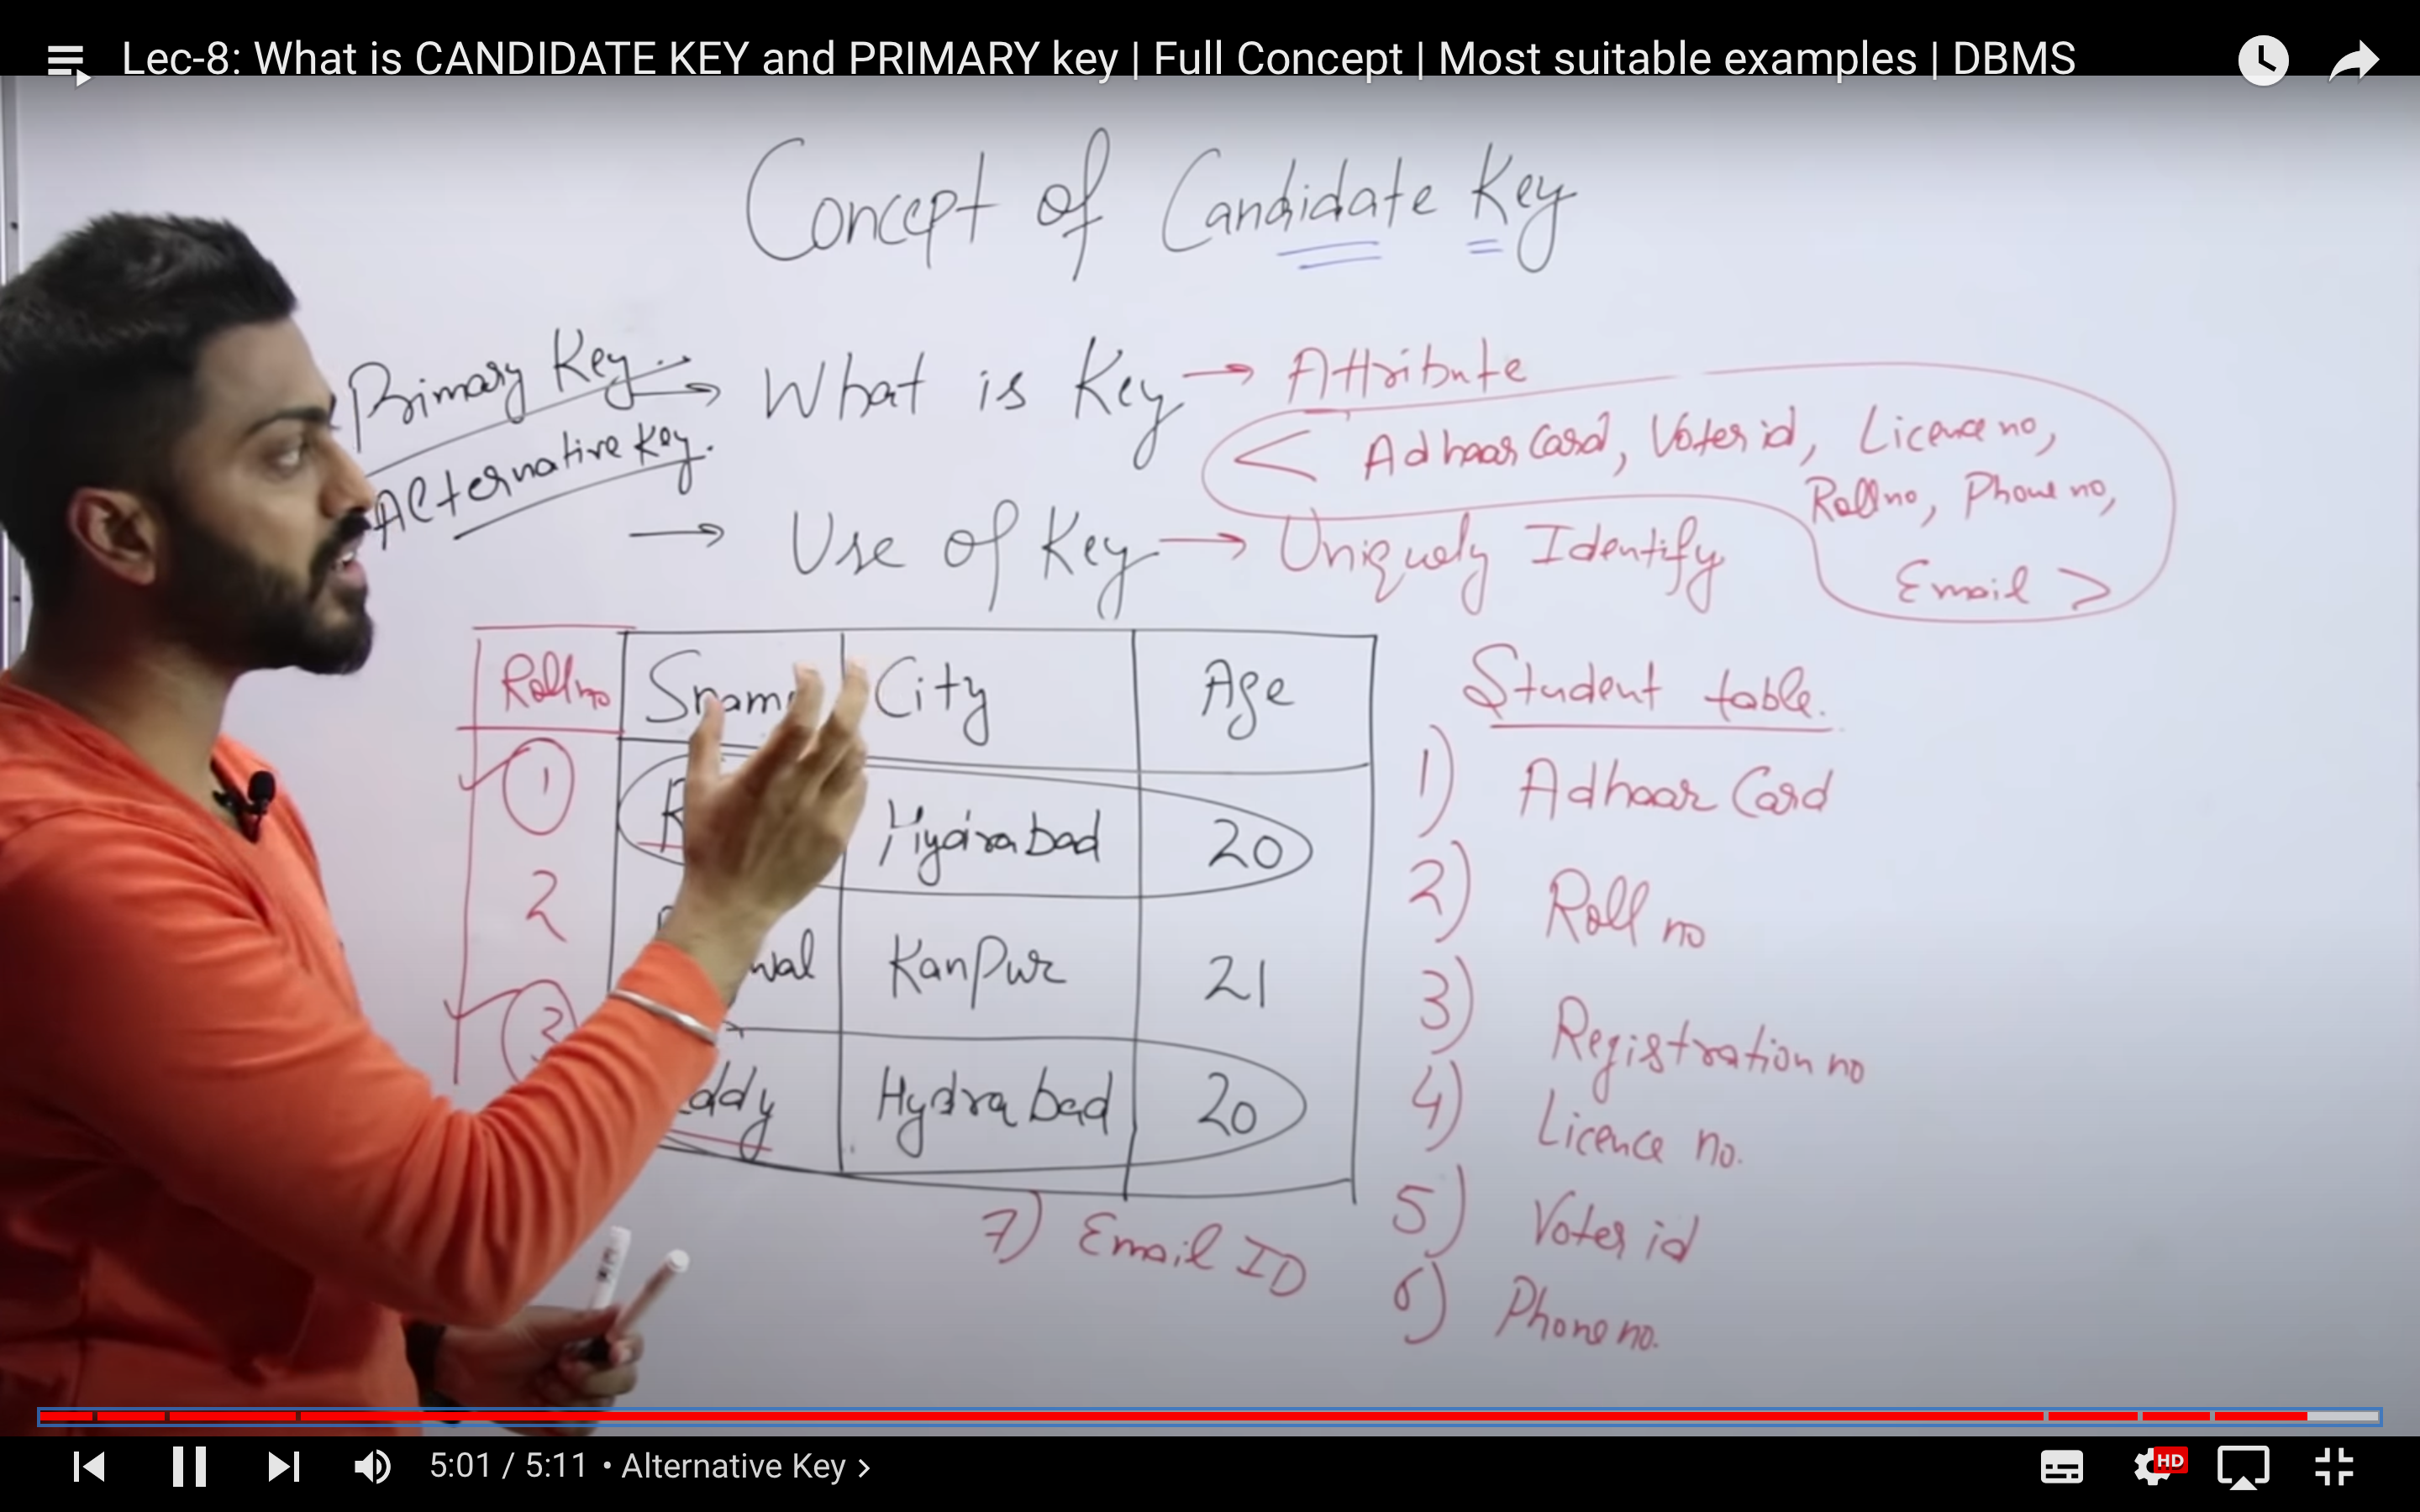 Lec-8: What is CANDIDATE KEY and PRIMARY key | Full Concept | Most suitable examples | DBMS
Concept of Candidate Key
Primary Key
Alternative Key.
→ What is Key → Attribute
< Adhaar Card, Voter id, Licence no,
Roll no, Phone no,
Email >
→ Use of Key → Uniquely Identify
Roll no City Age
1 Hydrabad 20
2 Kanpur 21
3 Hydrabad 20
Student table.
1) Adhaar Card
2) Roll no
3) Registration no
4) Licence no.
5) Voter id
6) Phone no.
7) Email ID
5:01 / 5:11 • Alternative Key >
HD